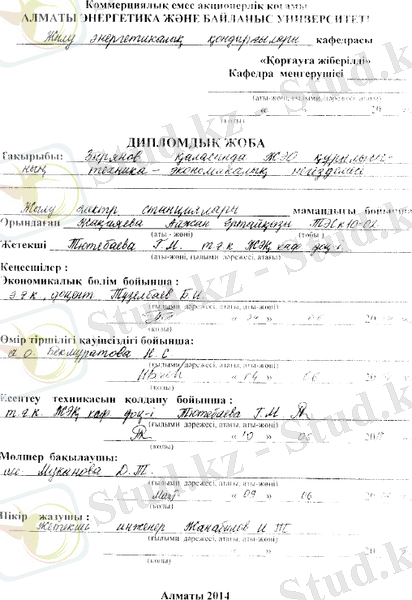 Коммерциялық емес акционерлік қоғамы
АЛМАТЫ ЭНЕРГЕТИКА ЖӘНЕ БАЙЛАНЫС УНИВЕРСИТЕТІ
Жылу энергетикалық қондырғылары кафедрасы
«Қорғауға жіберілді»
Кафедра меңгерушісі
(аты-жөні, ғылыми дәрежесі, атағы)
« » 20
(қолы)
ДИПЛОМДЫҚ ЖОБА
Тақырыбы: Зырянов қаласында ЖЭО құрылысы-
ның техника-экономикалық негізделісі
Жылу электр станциялары мамандығы бойынша
Орындаған Айжан ТЭСк-10-02
(аты - жөні) (тобы)
Жетекші Тютебаева Г.М. т.ғ.к ЖЭҚ каф. доц-і
(аты-жөні, ғылыми дәрежесі, атағы)
Кеңесшілер :
Экономикалық бөлім бойынша :
э.ғ.к., доцент Тузелбаев Б.И.
(ғылыми дәрежесі, атағы, аты-жөні)
« » 06 20
(қолы)
Өмір тіршілігі қауіпсіздігі бойынша:
Бекмуратова Н.С
(ғылыми дәрежесі, атағы, аты-жөні)
« » 06 20
(қолы)
Есептеу техникасын қолдану бойынша :
т.ғ.к ЖЭҚ каф. доц-і Тютебаева Г.М.
(ғылыми дәрежесі, атағы, аты-жөні)
« 10 » 06 20
(қолы)
Мөлшер бақылаушы:
Музкинова Д.Т
(ғылыми дәрежесі, атағы, аты-жөні)
« 09 » 06 20
(қолы)
Пікір жазушы :
Жетекші инженер
(ғылыми дәрежесі, атағы, аты-жөні)
« » 20
(қолы)
Алматы 2014
Stud.kz - Stud.kz